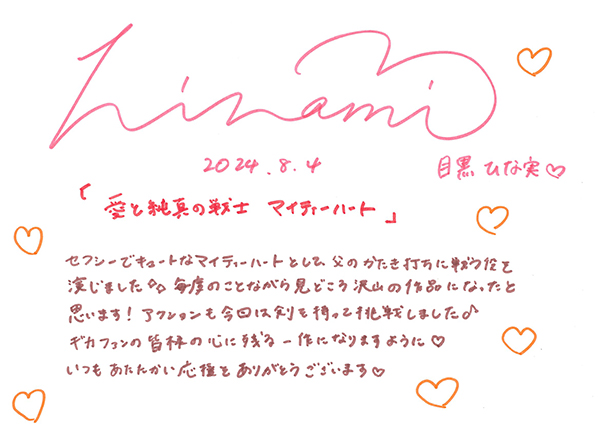 Hinami
2024.8.4
目黒 ひな実♡
「愛と純真の戦士 マイティーハート」
セクシーでキュートなマイティーハートとして、父のかたき打ちに戦う役を
演じました✧ 毎度のことながら見どころ沢山の作品になったと
思います! アクションも今回は剣を持って挑戦しました♪
ギガファンの皆様の心に残る一作になりますように♡
いつもあたたかい応援をありがとうございます♡